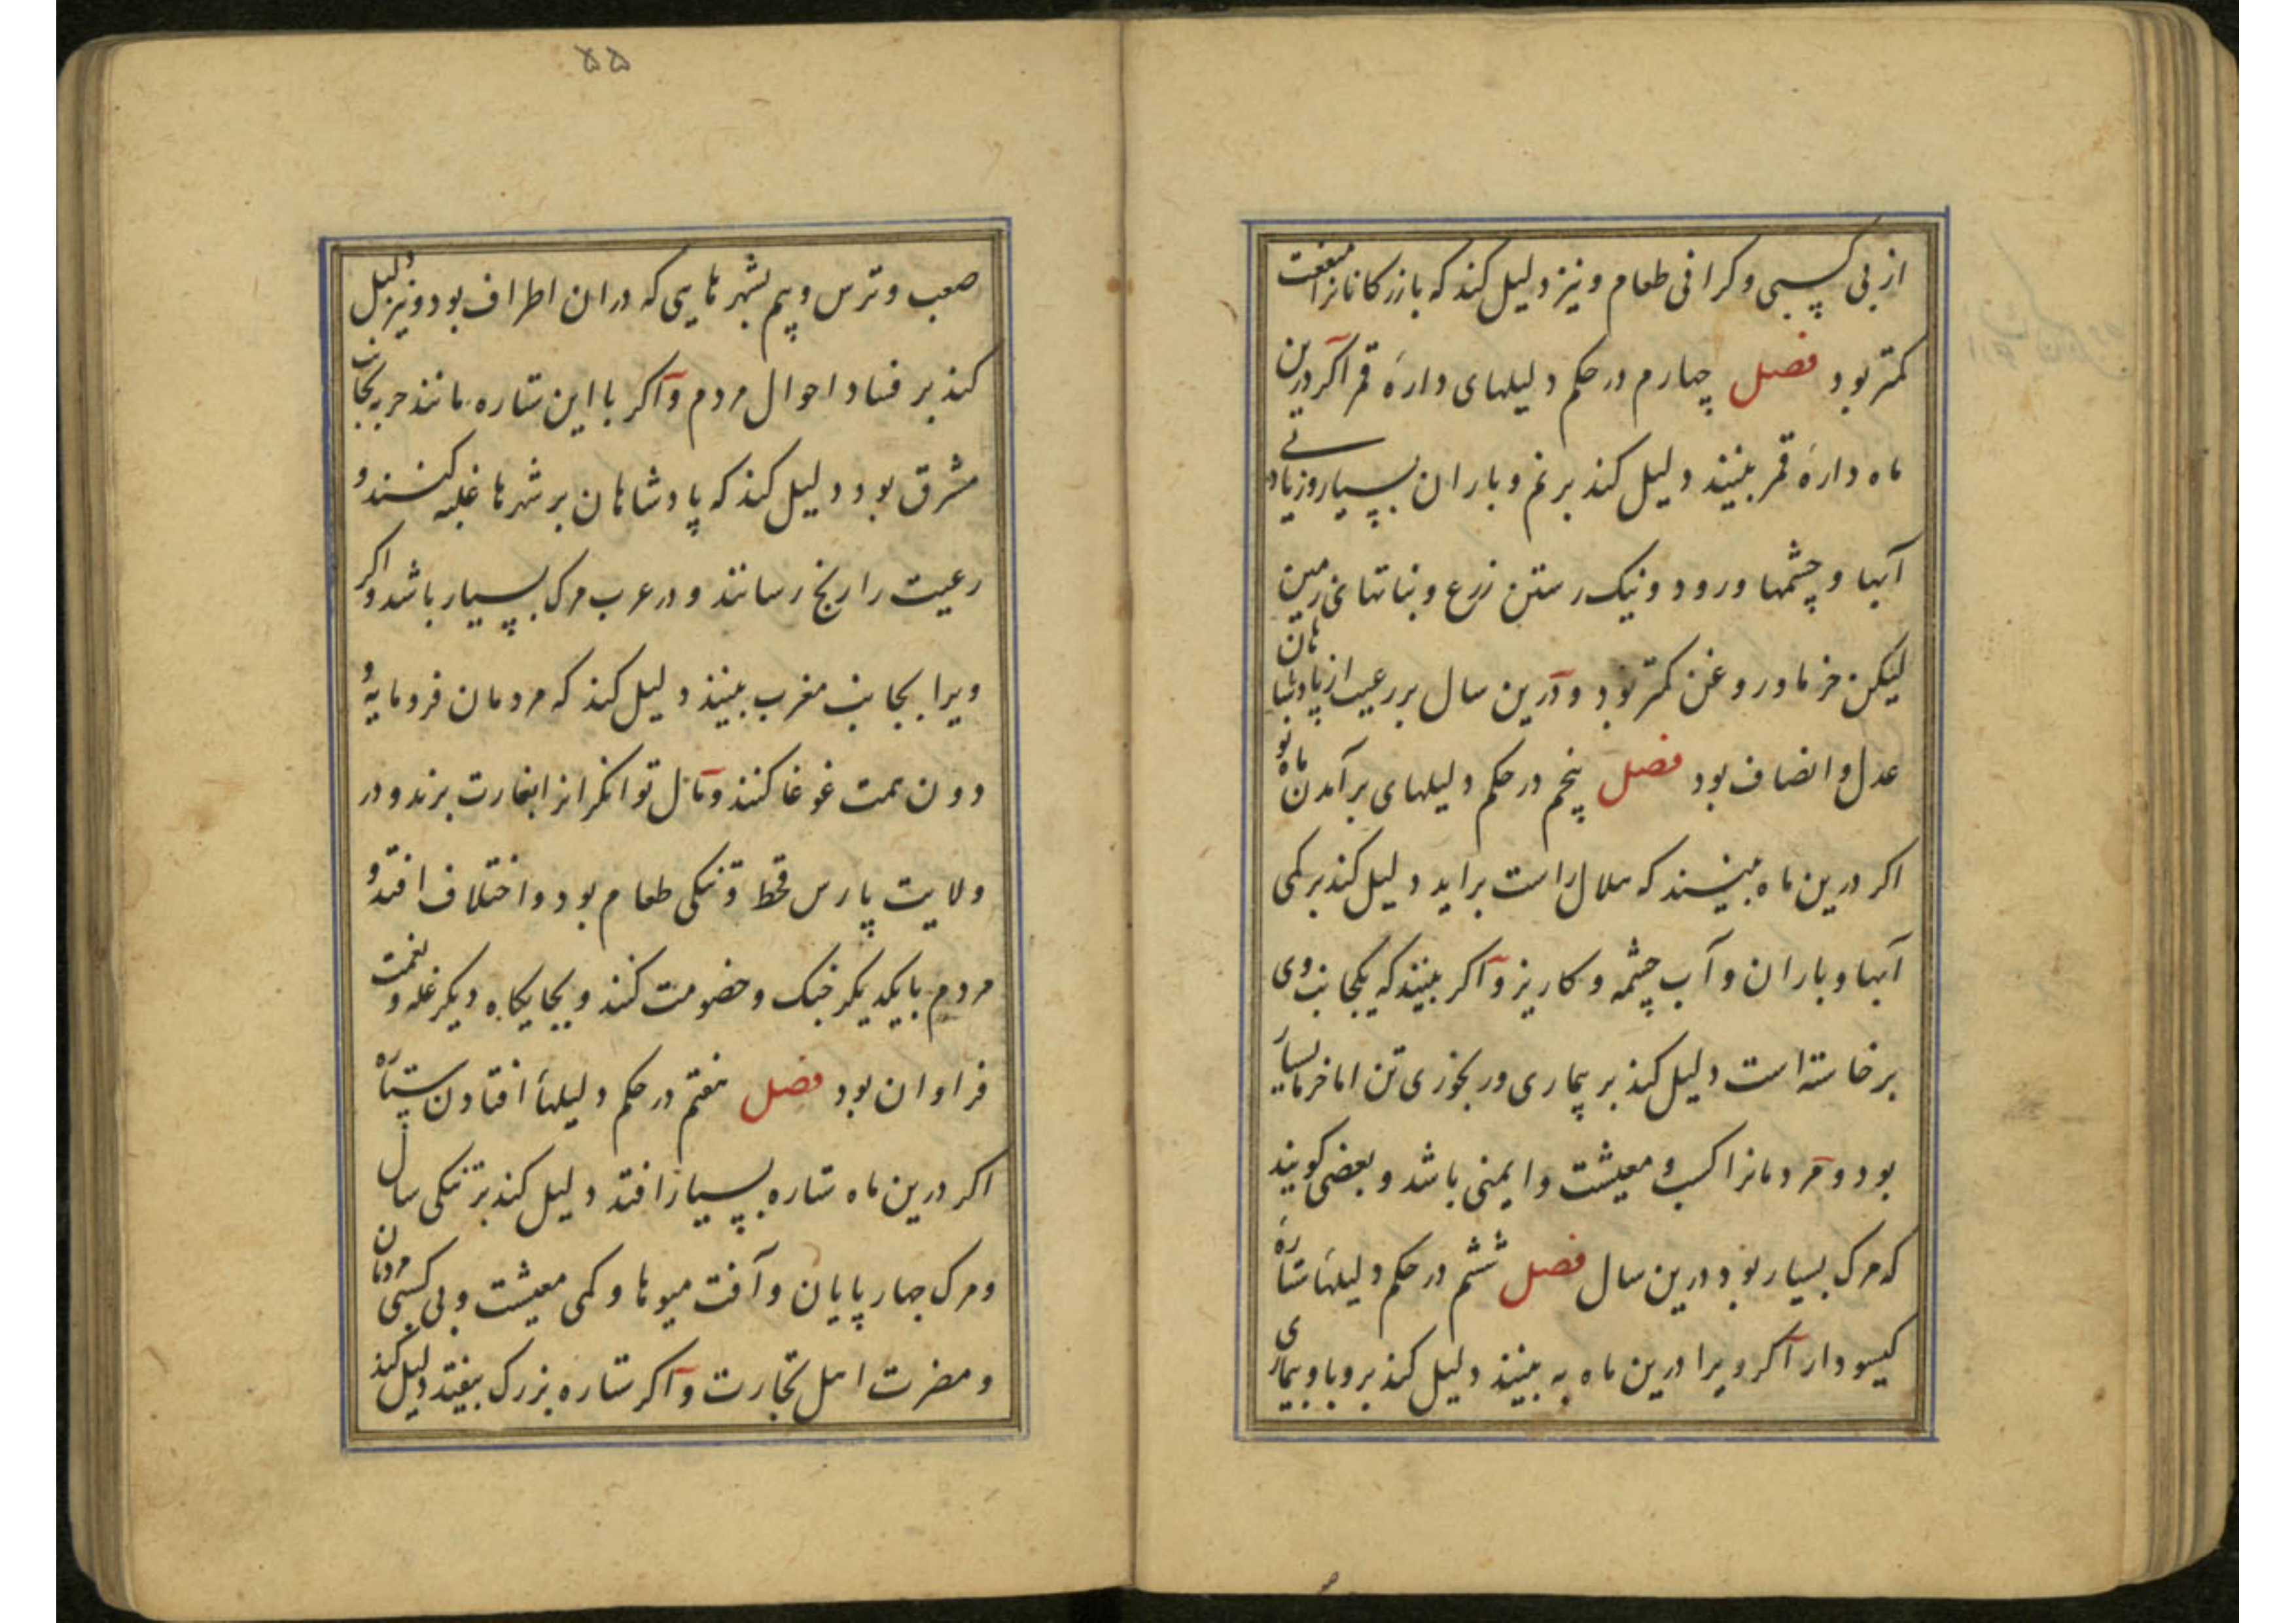 از بی کسبی و کرانی طعام و نیز دلیل کند که بازرکانانرا منفعت
کمتر بود فصل چهارم در حکم دلیلهای دارهٔ قمر اکر درین
ماه دارهٔ قمر بینند دلیل کند بر نم و باران بسیار و زیادتی
آبها و چشمها و رود و نیک رستن زرع و نباتهای زمین
لیکن خرما و روغن کمتر بود و درین سال بر رعیت از پادشاهان
عدل و انصاف بود فصل پنجم در حکم دلیلهای برآمدن ماه نو
اکر درین ماه بینند که هلال راست براید دلیل کند بر کمی
آبها و باران و آب چشمه و کاریز و اکر بینند که یکجانب وی
برخاسته است دلیل کند بر بیماری و رنجوری تن اما خرما بسیار
بود و مردمانرا کسب و معیشت و ایمنی باشد و بعضی کویند
که مرک بسیار بود درین سال فصل ششم در حکم دلیلهٔا ستارهٔ
کیسودار اکر ویرا درین ماه به بینند دلیل کند بر وبا و بیماری
۵۵
صعب و ترس و بیم بشهرهایی که دران اطراف بود و نیز دلیل
کند بر فساد احوال مردم و اکر با این ستاره مانند حربه بجانب
مشرق بود دلیل کند که پادشاهان بر شهرها غلبه کنند و
رعیت را رنج رسانند و در عرب مرک بسیار باشد و اکر
ویرا بجانب مغرب بینند دلیل کند که مردمان فرومایه و
دون همت غوغا کنند و مال توانکرانرا بغارت برند و در
ولایت پارس قحط و تنکی طعام بود و اختلاف افتد و
مردم بایکدیکر جنک و خصومت کنند و بجایکاه دیکر غله و نعمت
فراوان بود فصل هفتم در حکم دلیلهٔا افتادن ستاره
اکر درین ماه ستاره بسیار افتد دلیل کند بر تنکی سال
و مرک چهارپایان و آفت میوها و کمی معیشت و بی کسبی مردمان
و مضرت اهل تجارت و اکر ستاره بزرک بیفتد دلیل کند